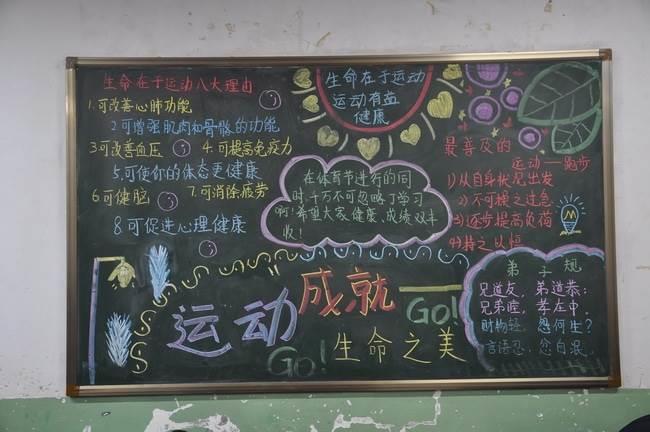 生命在于运动八大理由
1.可改善心肺功能
2可增强肌肉和骨骼的功能
3可改善血压 4.可提高免疫力
5.可使你的体态更健康
6可健脑 7.可消除疲劳
8可促进心理健康
生命在于运动
运动有益
健康
在体育节进行的同
时,千万不可忽略了学习
啊!希望大家,健康,成绩双丰
收!
最普及的
运动——跑步
1)从自身状况出发
2)不可操之过急
3)逐步提高负荷
4)持之以恒
运动
成就
Go!
Go!
生命之美
弟子规
兄道友,弟道恭;
兄弟睦,孝在中,
财物轻,怨何生?
言语忍,忿自泯,